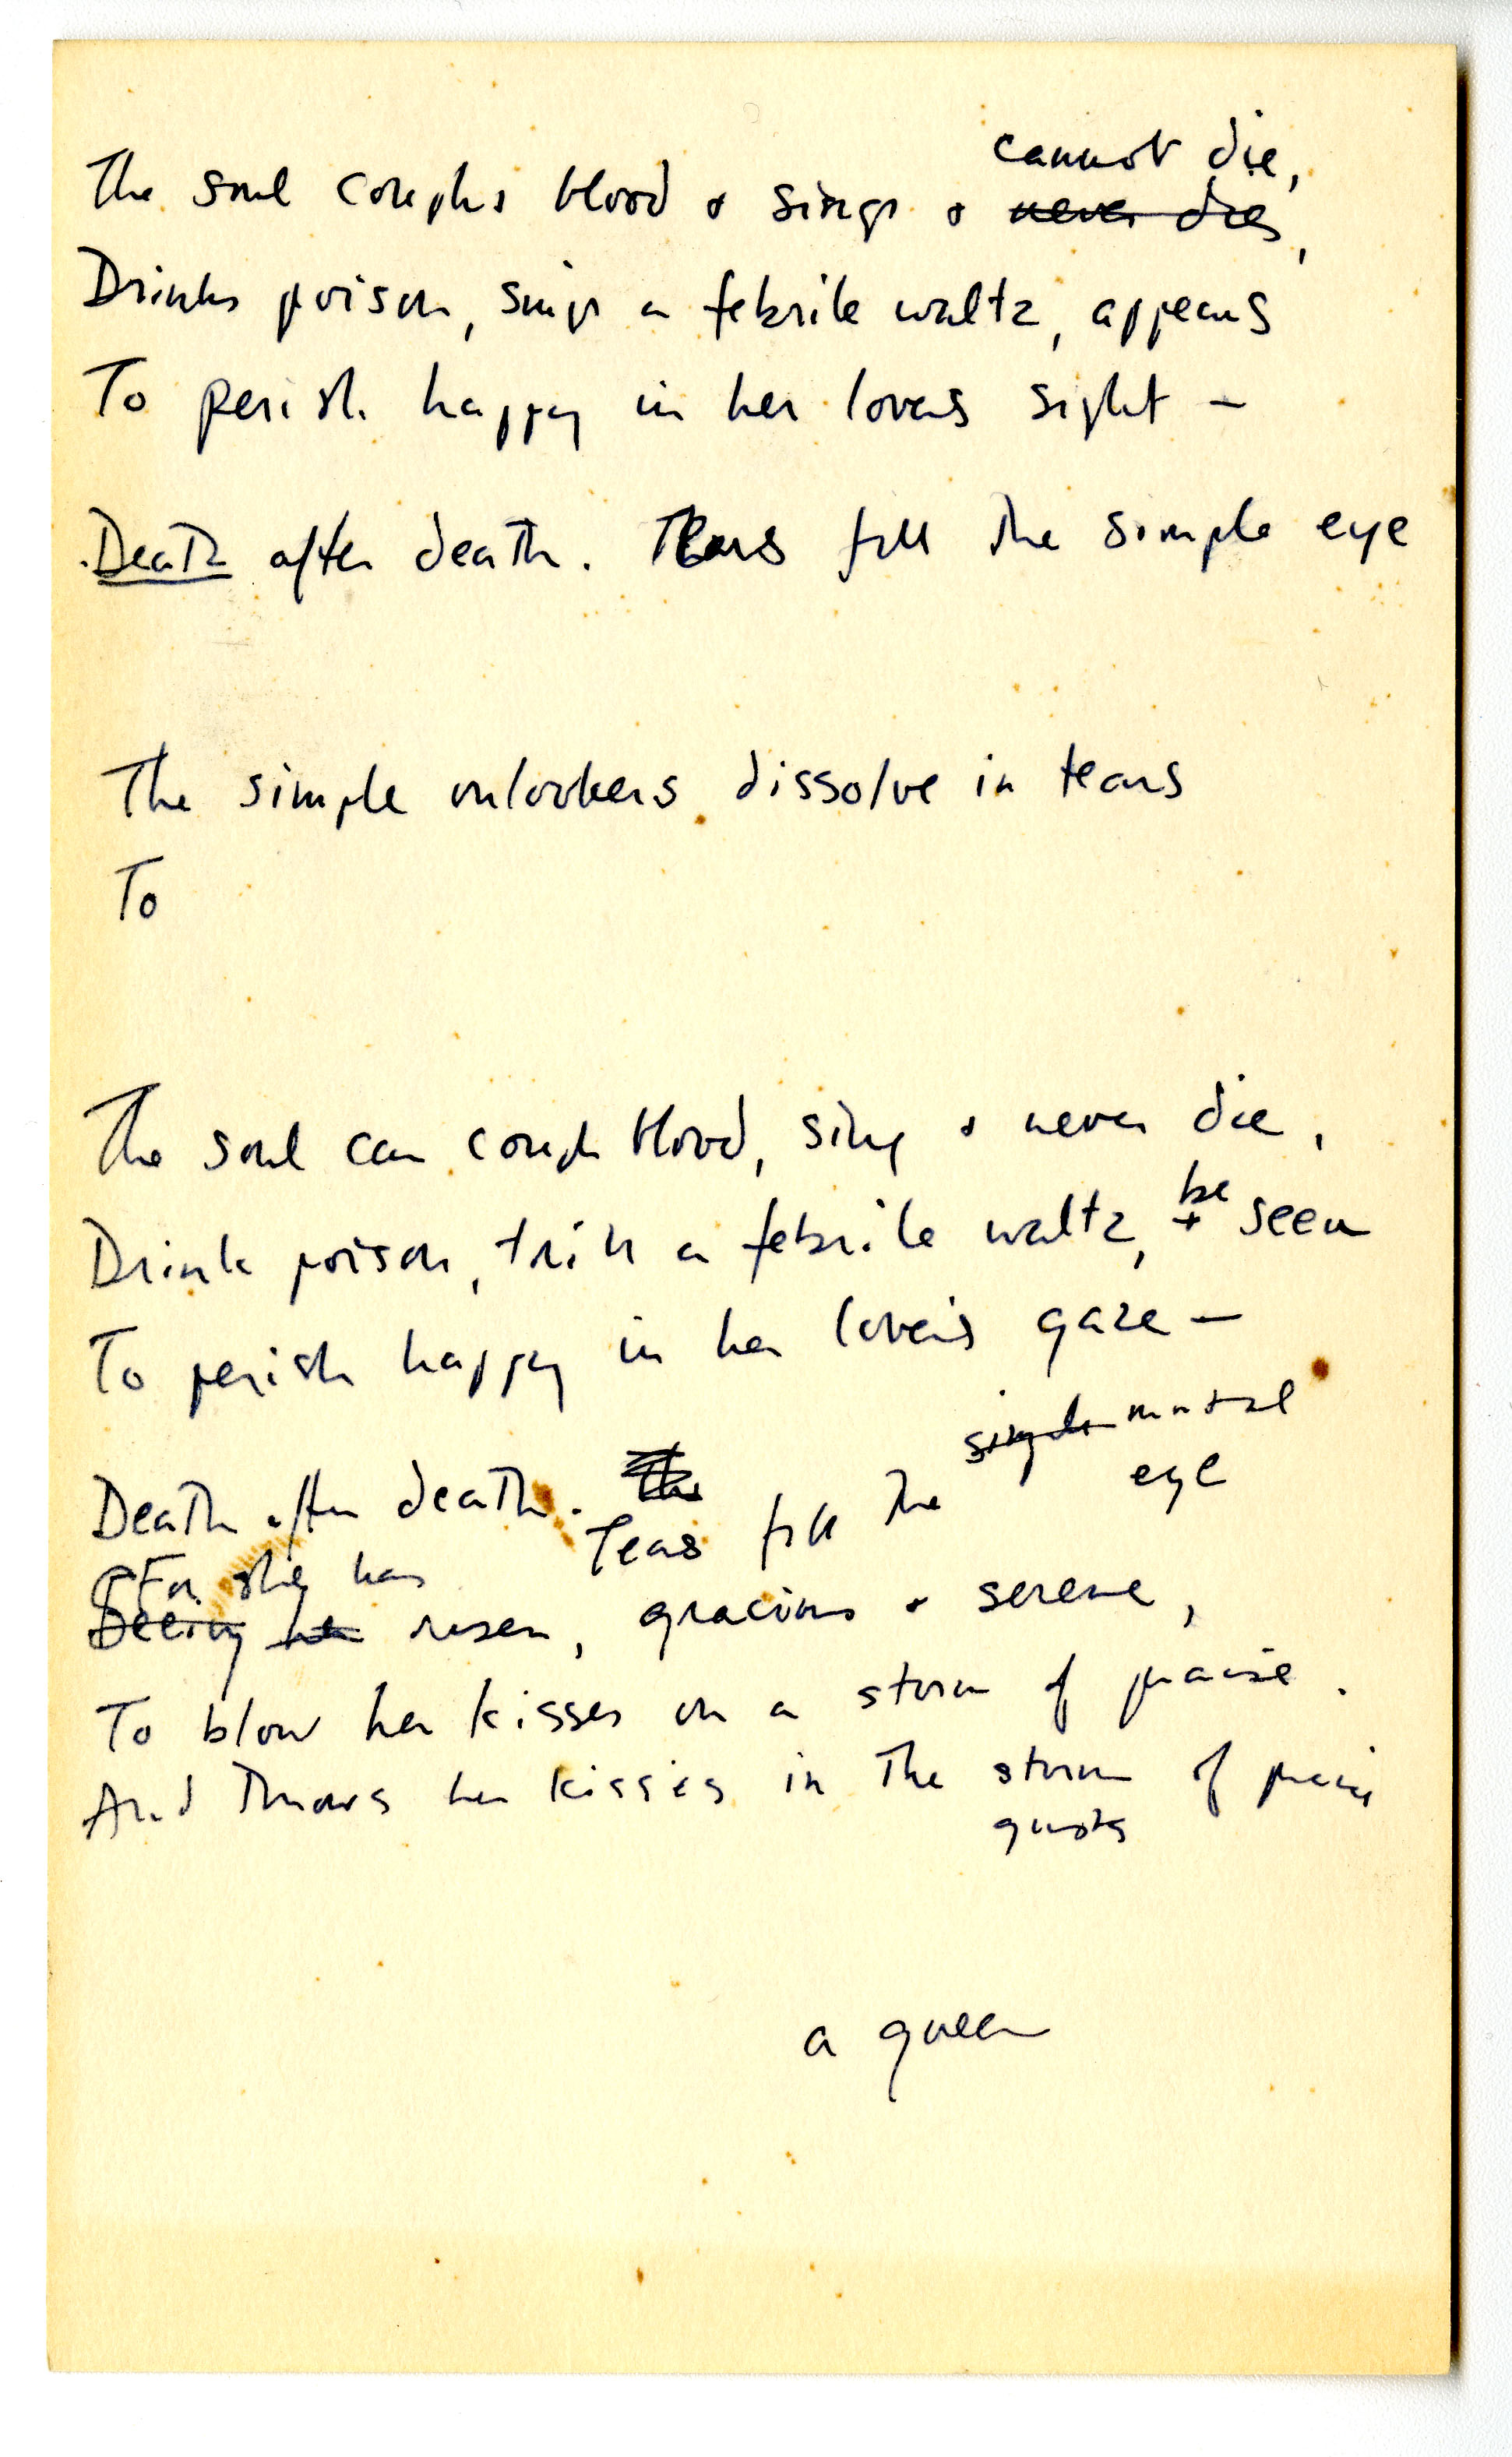 cannot die,
The soul coughs blood & sings & never dies,
Drinks poison, sings a febrile waltz, appears
To perish happy in her lovers sight —
Death after death. Tears fill the simple eye
The simple onlookers dissolve in tears
To
The soul can cough blood, sing & never die,
be
Drink poison, trill a febrile waltz, & seen
To perish happy in her lover's gaze —
simple mortal
Death after death. The eye
Tears fill the
For she has
Seeing her risen, gracious & serene,
To blow her kisses on a storm of praise.
And throws her kisses in the storm of praise
gusts
a queen